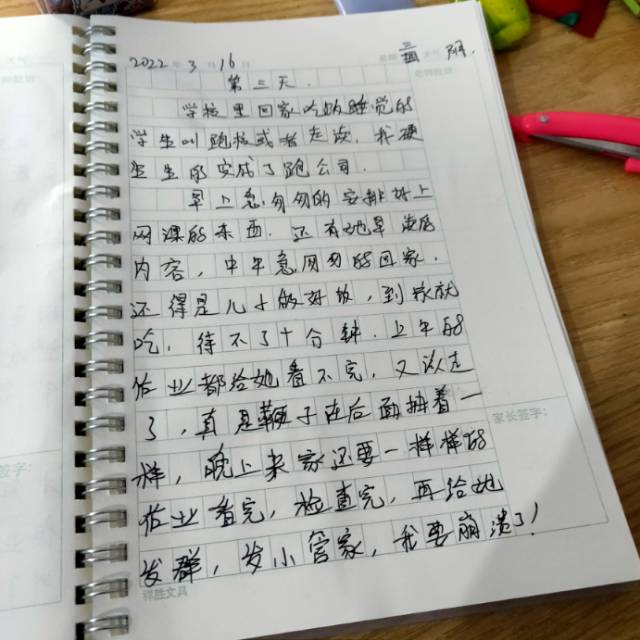 2022年3月16日 星期三 阴.
第三天.
学校里回家吃饭睡觉的
学生叫跑校或者走读.我硬
生生的变成了跑公司.
早上急匆匆的安排好上
网课的东西.还有她早读的
内容,中午急匆匆的回家.
还得是儿子做好饭,到家就
吃.待不了十分钟.上午的
作业都给她看不完,又该走
了,真是鞭子在后面抽着一
样,晚上来家还要一样样的
作业看完,检查完,再给她
发群,发小管家,我要崩溃了!
家长签字:
签字:
祥胜文具